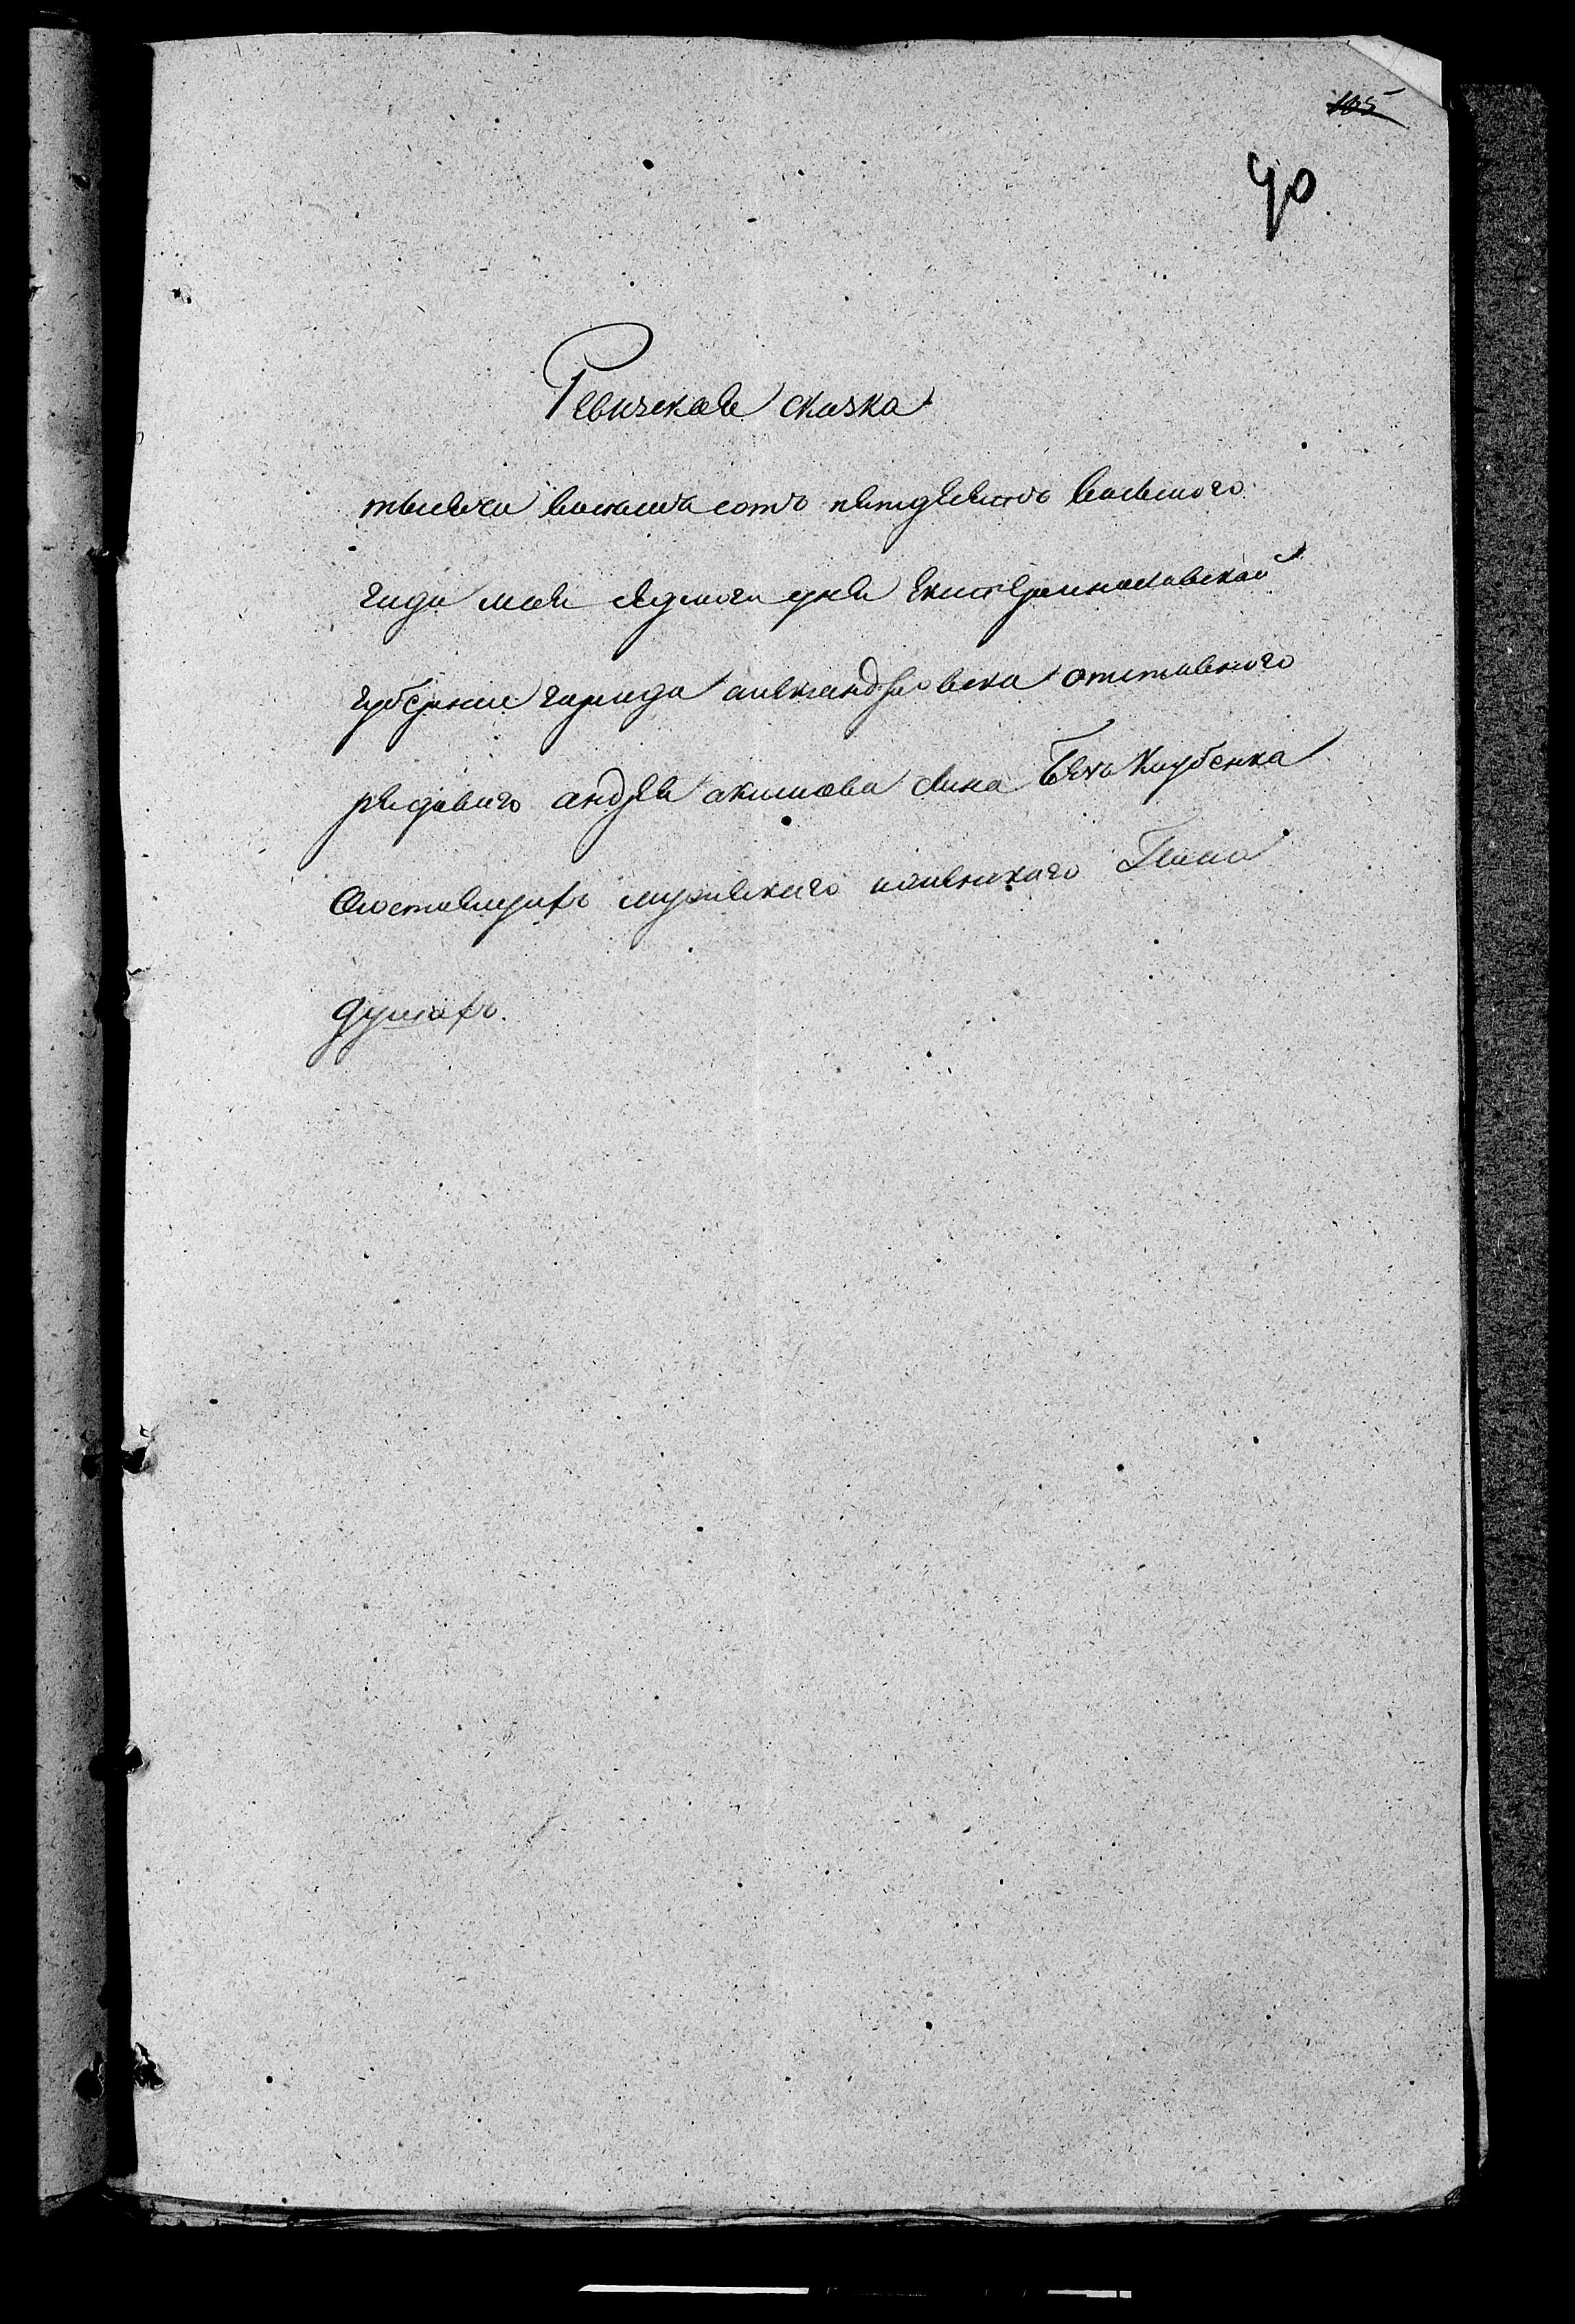 105
40
Ревизская сказка
тысяча восемь сотъ пятдесятъ восьмого
года мая седмого дня Екатеринославской
губернии города александровска отставного
рядового андрея акимова сына
Осостоящихъ мужескаго и женскаго Пола
душахъ.